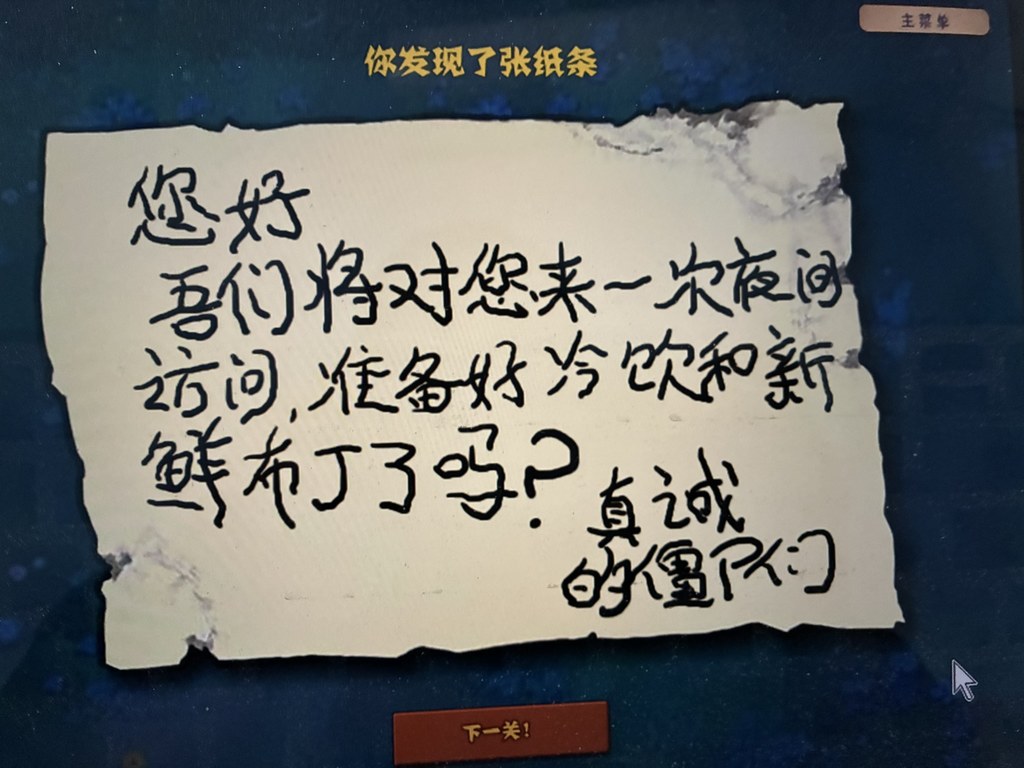 主菜单
你发现了张纸条
您好
吾们将对您来一次夜间
访问,准备好冷饮和新
鲜布丁了吗?
真诚
的僵尸们
下一关!